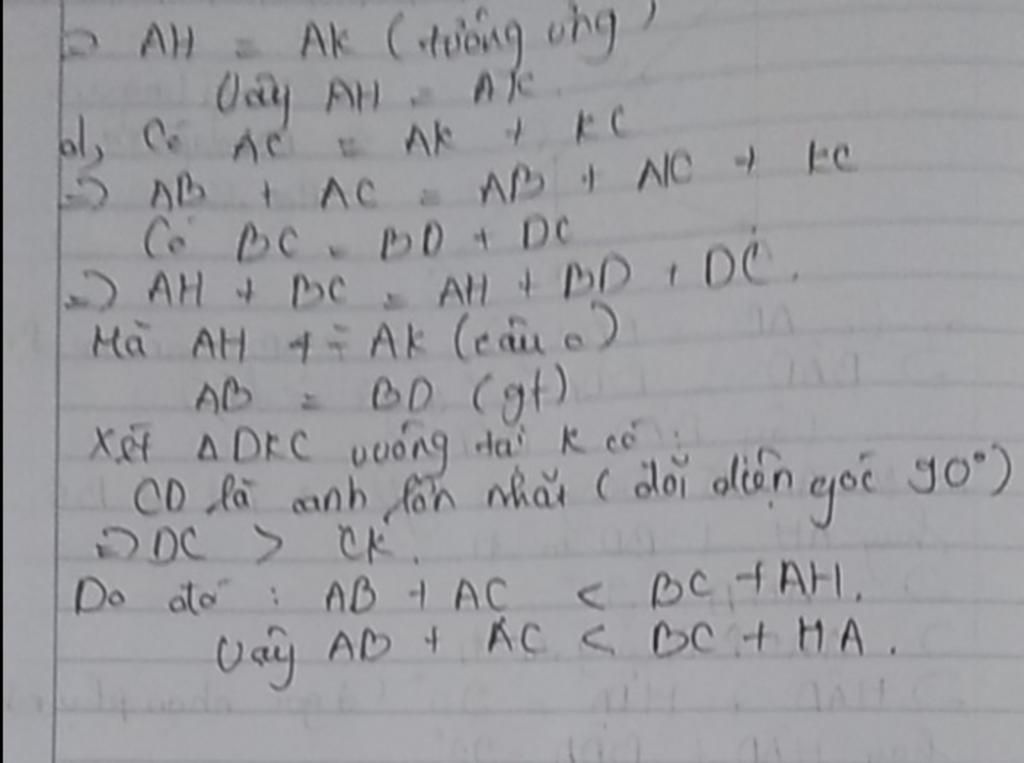 => AH = AK (tương ứng)
Vậy AH = AK.
d, Có AC = AK + KC
=> AB + AC = AB + AK + KC
Có BC = BD + DC
=> AH + BC = AH + BD + DC.
Mà AH = AK (câu c)
AB = BD (gt)
Xét Δ DKC vuông tại K có:
CD là cạnh lớn nhất (đối diện góc 90°)
=> DC > CK.
Do đó : AB + AC < BC + AH.
Vậy AB + AC < BC + HA.